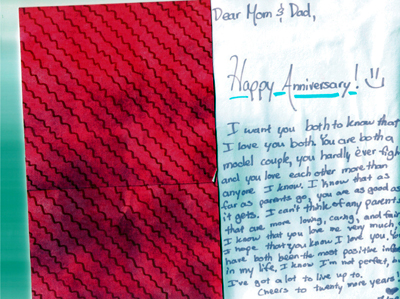 Dear Mom & Dad,
Happy Anniversary!
I want you both to know that
I love you both. You are both a
model couple, you hardly ever figh
and you love each other more than
anyone I know. I know that as
far as parents go, you are as good as
it gets. I can't think of any parent
that are more loving, caring, and fair
I know that you love me very much,
I hope that you know I love you,
have both been the most positive infl
in my life, I know I'm not perfect,
I've got a lot to live up to.
Cheers to twenty more years!